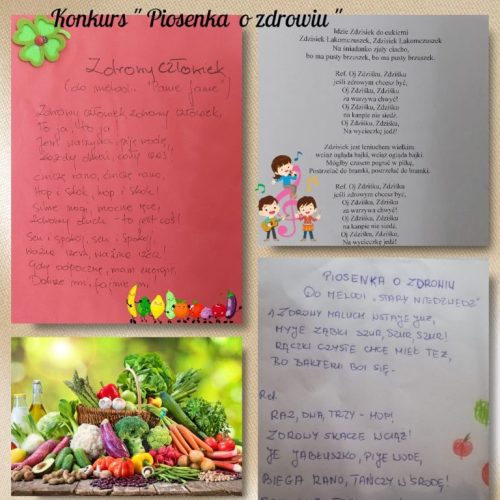 Konkurs " Piosenka o zdrowiu "
Zdrowy człowiek
(do melodii "Panie Janie")
Zdrowy człowiek, zdrowy człowiek,
to ja, to ja!
Jem warzywa, piję wodę,
każdy dzień, cały czas!
Ćwiczę rano, ćwiczę rano,
Hop i skok, hop i skok!
Silne nogi, mocne ręce,
Zdrowy duch - to jest coś!
Sen i spokój, sen i spokój,
ważna rzecz, ważna rzecz!
Gdy odpocznę, mam energię,
Dobrze mi, fajnie mi
Idzie Zdzisiek do cukierni
Zdzisiek Łakomczuszek, Zdzisiek Łakomczuszek
Na śniadanko zjały ciacho,
bo ma pusty brzuszek, bo ma pusty brzuszek.
Ref. Oj Zdziśku, Zdziśku
jeśli zdrowym chcesz być,
Oj Zdziśku, Zdziśku
za warzywa chwyć!
Oj Zdziśku, Zdziśku
na kanpie nie siedź.
Oj Zdziśku, Zdziśku,
Na wycieczkę jedź!
Zdzisiek jest leniuchem wielkim.
wciaż ogląda bajki, wciaż ogląda bajki.
Mógłby czasem pograć w piłkę,
Postrzelać do bramki, postrzelać do bramki.
Ref. Oj Zdziśku, Zdziśku
jeśli zdrowym chcesz być,
Oj Zdziśku, Zdziśku
za warzywa chwyć!
Oj Zdziśku, Zdziśku
na kanpie nie siedź.
Oj Zdziśku, Zdziśku,
Na wycieczkę jedź!
PIOSENKA O ZDROWIU
DO MELODII „STARY NIEDŹWIEDŹ"
1. ZDROWY MALUCH WSTAJE JUŻ,
MYJE ZĄBKI SZUR, SZUR, SZUR!
RĄCZKI CZYSTE CHCE MIEĆ TEŻ,
BO BAKTERII BOI SIĘ.
Ref.
RAZ, DWA, TRZY - HOP!
ZDROWY SKACZE WCIĄŻ!
JE JABŁUSZKO, PIJE WODĘ,
BIEGA RANO, TAŃCZY W ŚRODĘ!